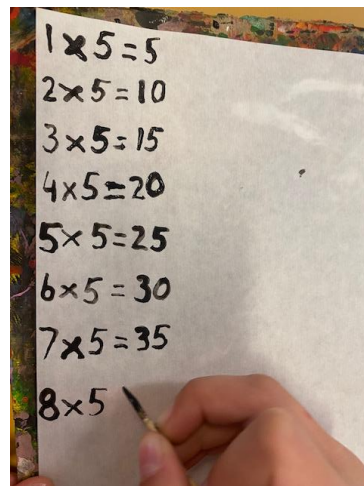 1×5=5
2×5=10
3×5=15
4×5=20
5×5=25
6×5=30
7×5=35
8×5